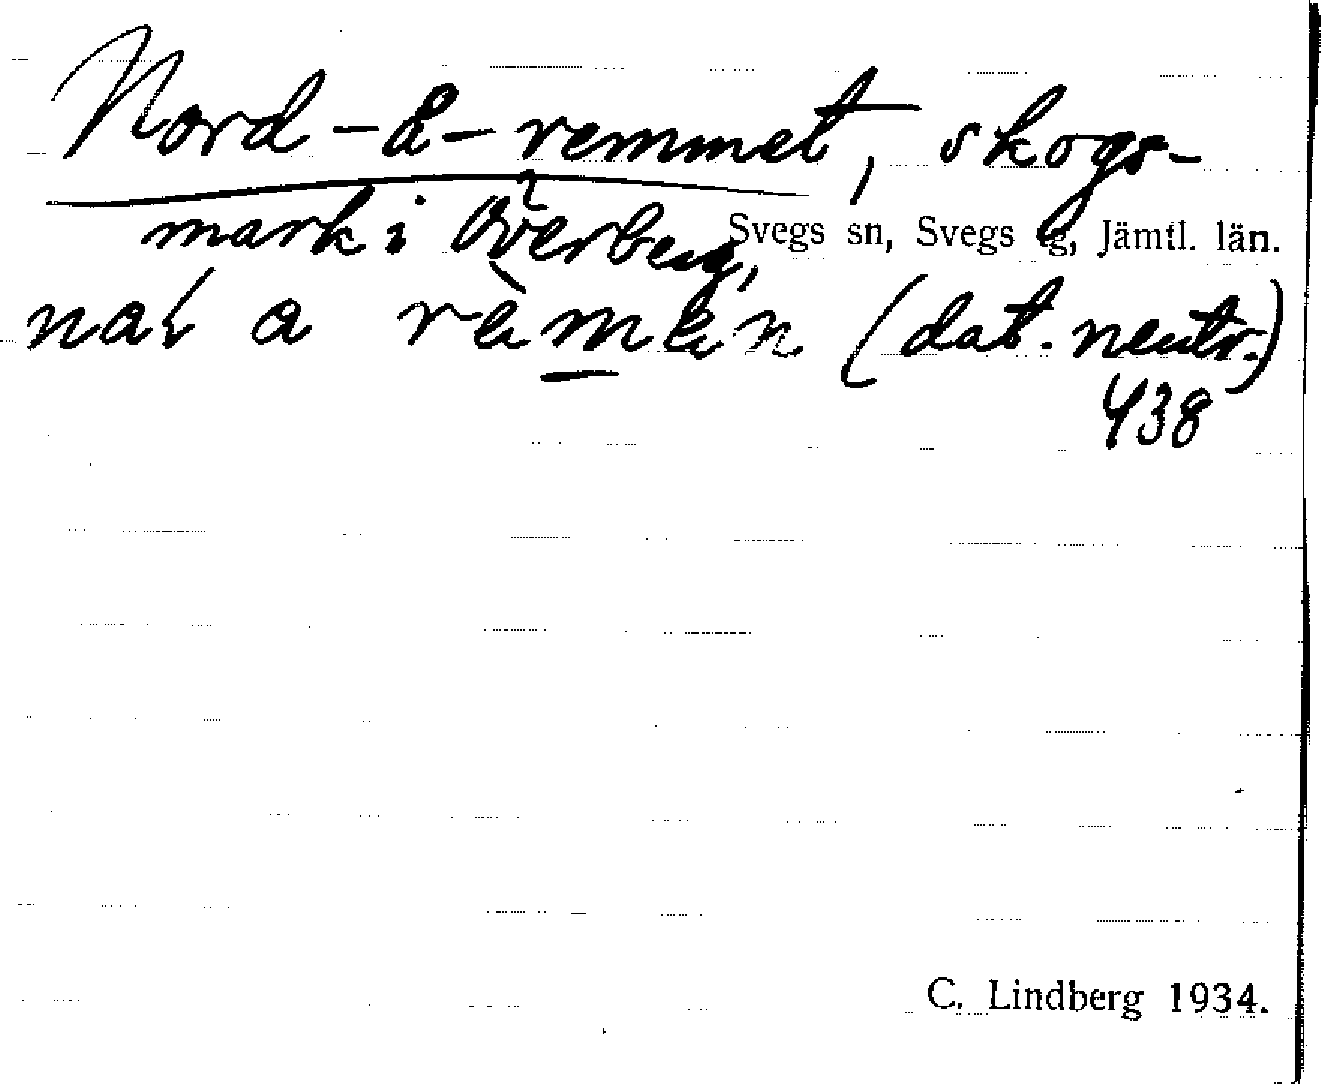 Nord-å-remmet, skogs-
mark i Överberg, Svegs sn, Svegs tg, Jämtl. län.
a rèmen (dat. neutr.)
438
C. Lindberg 1934.